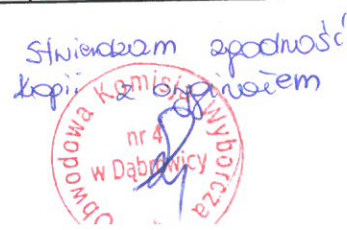 Stwierdzam zgodność
kopii z oryginałem
Obwodowa Komisja Wyborcza
nr 4
w Dąbrowicy